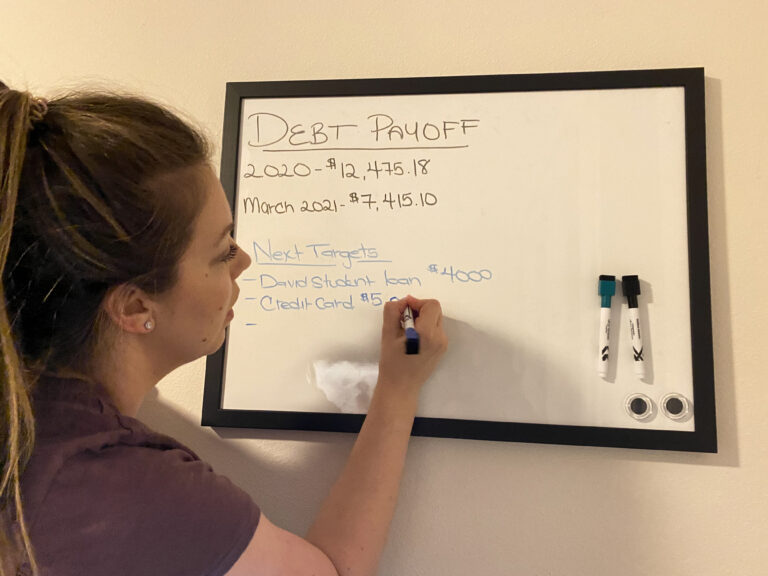 DEBT PAYOFF
2020 - $12,475.18
March 2021 - $7,415.10
Next Targets
- David student loan $4000
- Credit Card $5,
-